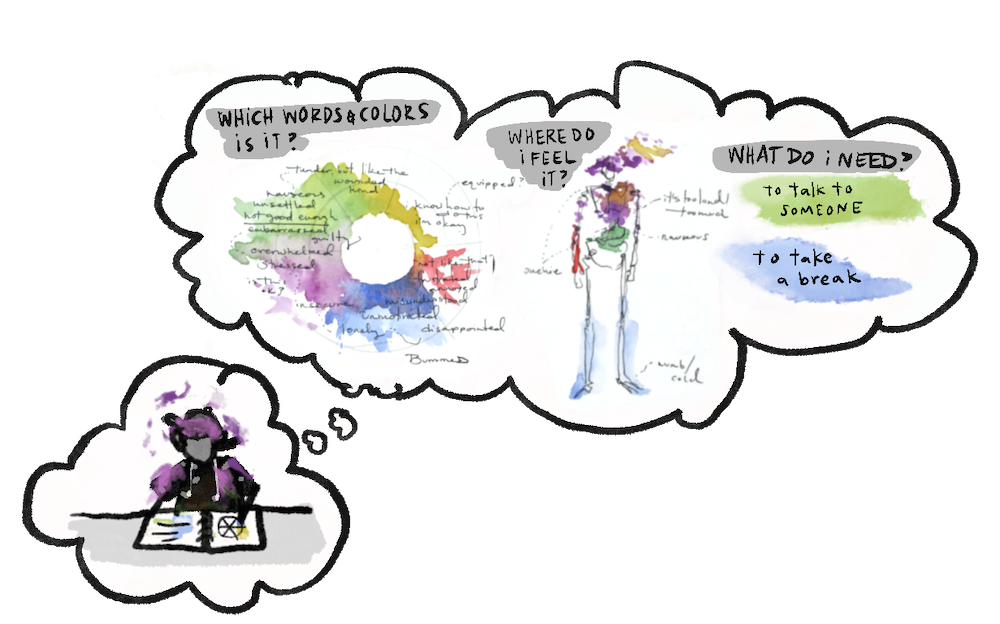 WHICH WORDS & COLORS
iS iT?
tender, but like the
wounded
kind
nauseous
unsettled
not good enough
embarrassed
guilty
overwhelmed
stressed
insecure
lonely
unmotivated
misunderstood
disappointed
Bummed
not like that
equipped?
i know how to
do this
i'm okay
WHERE DO
i FEEL
iT?
it's too loud/
too much
nauseous
numb/
cold
WHAT DO i NEED?
to talk to
SOMEONE
to take
a break